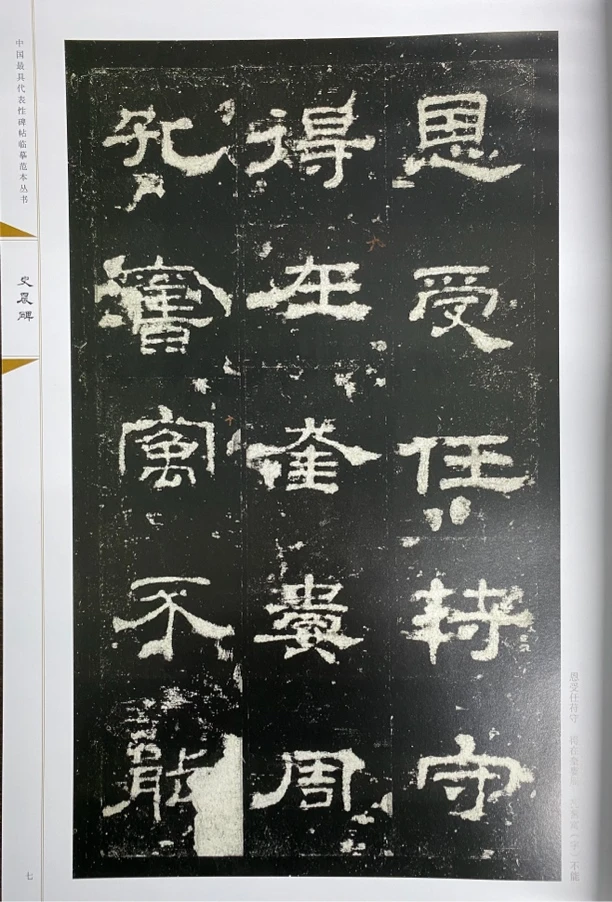 恩受任持守
得在奎婁周
孔舊寓不能
中国最具代表性碑帖临摹范本丛书
史晨碑
七
恩受任持守 得在奎婁周 孔舊寓(宇)不能